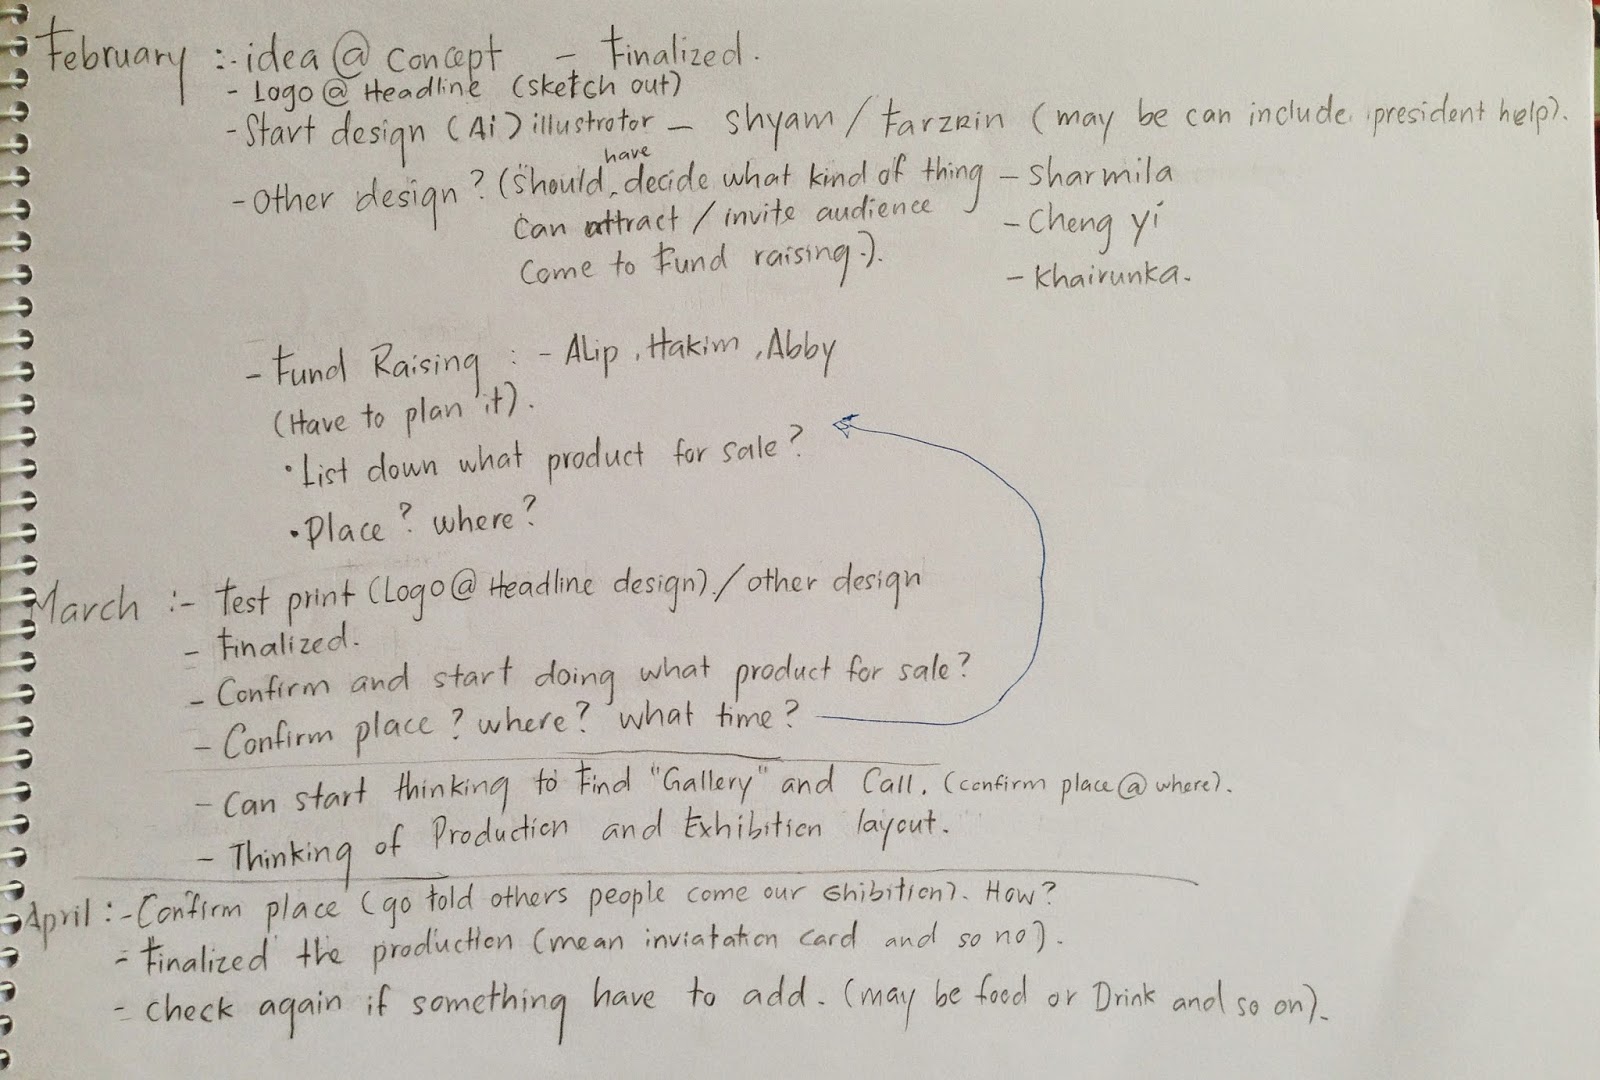 February :- idea @ concept - Finalized.
- Logo @ Headline (sketch out)
- Start design (Ai) illustrator - shyam / Farzrin (may be can include president help).
- Other design? (should have decide what kind of thing - Sharmila
can attract / invite audience - Cheng yi
come to Fund raising.). - Khairunka.
- Fund Raising : - Alip, Hakim, Abby
(Have to plan it).
• List down what product for sale?
• Place? where?
March :- Test print (Logo @ Headline design) / other design
- Finalized.
- Confirm and start doing what product for sale?
- Confirm place? where? what time?
- Can start thinking to Find "Gallery" and Call. (confirm place @ where).
- Thinking of Production and Exhibition layout.
April :- Confirm place (go told others people come our Exhibition). How?
- Finalized the production (mean inviatation card and so no).
- check again if something have to add. (may be food or Drink and so on).